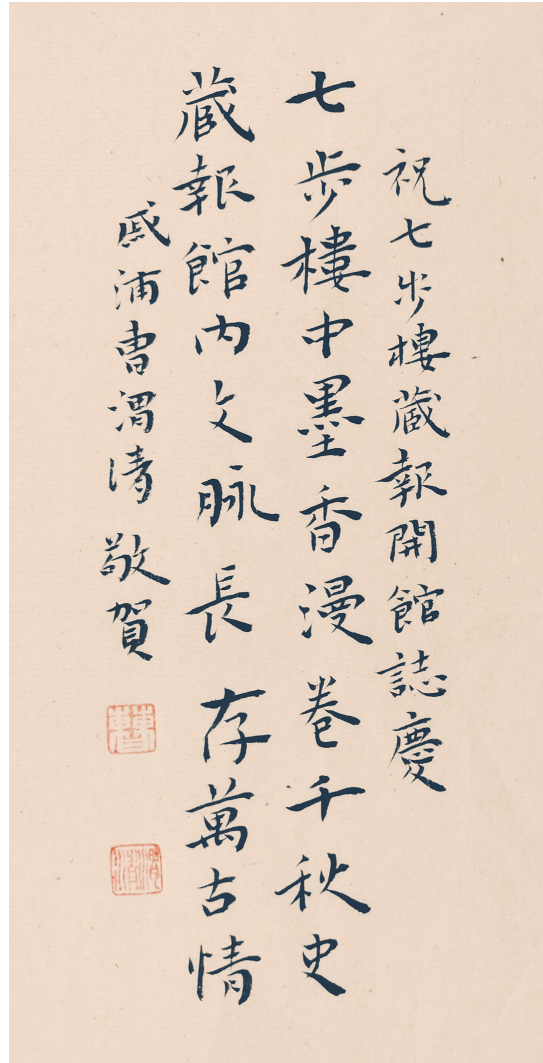 祝七步樓蔵報開館誌慶
七步樓中墨香漫卷千秋史
蔵報館内文脉長存萬古情
戚浦曹渭清敬賀